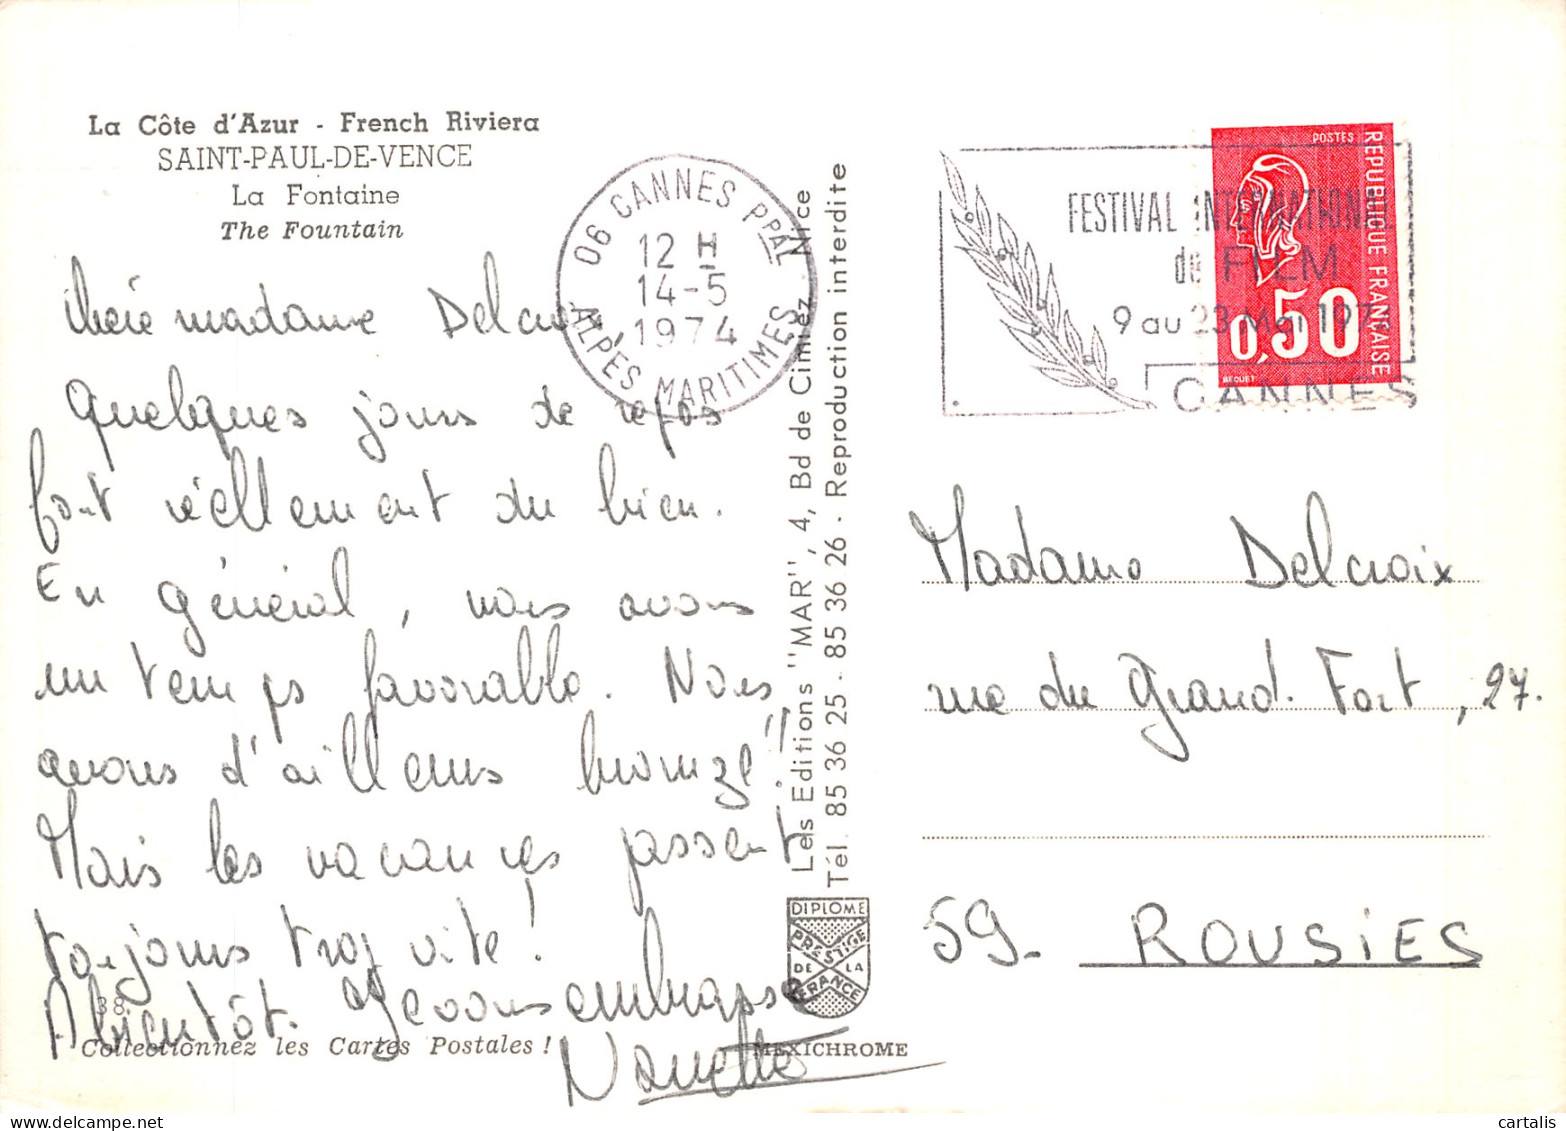 La Côte d'Azur - French Riviera
SAINT-PAUL-DE-VENCE
La Fontaine
The Fountain
Chère madame Delcroix
Quelques jours de repos
font réellement du bien.
En général, nous avons
un temps favorable. Nous
avons d'ailleurs bronzé!!
Mais les vacances passent
toujours trop vite!
A bientôt. Je vous embrasse
Nanette
38
Collectionnez les Cartes Postales !
MEXICHROME
06 CANNES PPAL
12 H
14-5
1974
ALPES MARITIMES
Les Editions "MAR", 4, Bd de Cimiez - Nice
Tél. 85 36 25 - 85 36 26 - Reproduction interdite
DIPLOME
PRESTIGE
DE LA
FRANCE
FESTIVAL INTERNATIONAL
du FILM
9 au 23 Mai 1974
CANNES
POSTES
REPUBLIQUE FRANÇAISE
0,50
BEQUET
Madame Delcroix
rue du Grand-Fort, 27.
59- ROUSIES
cartalis